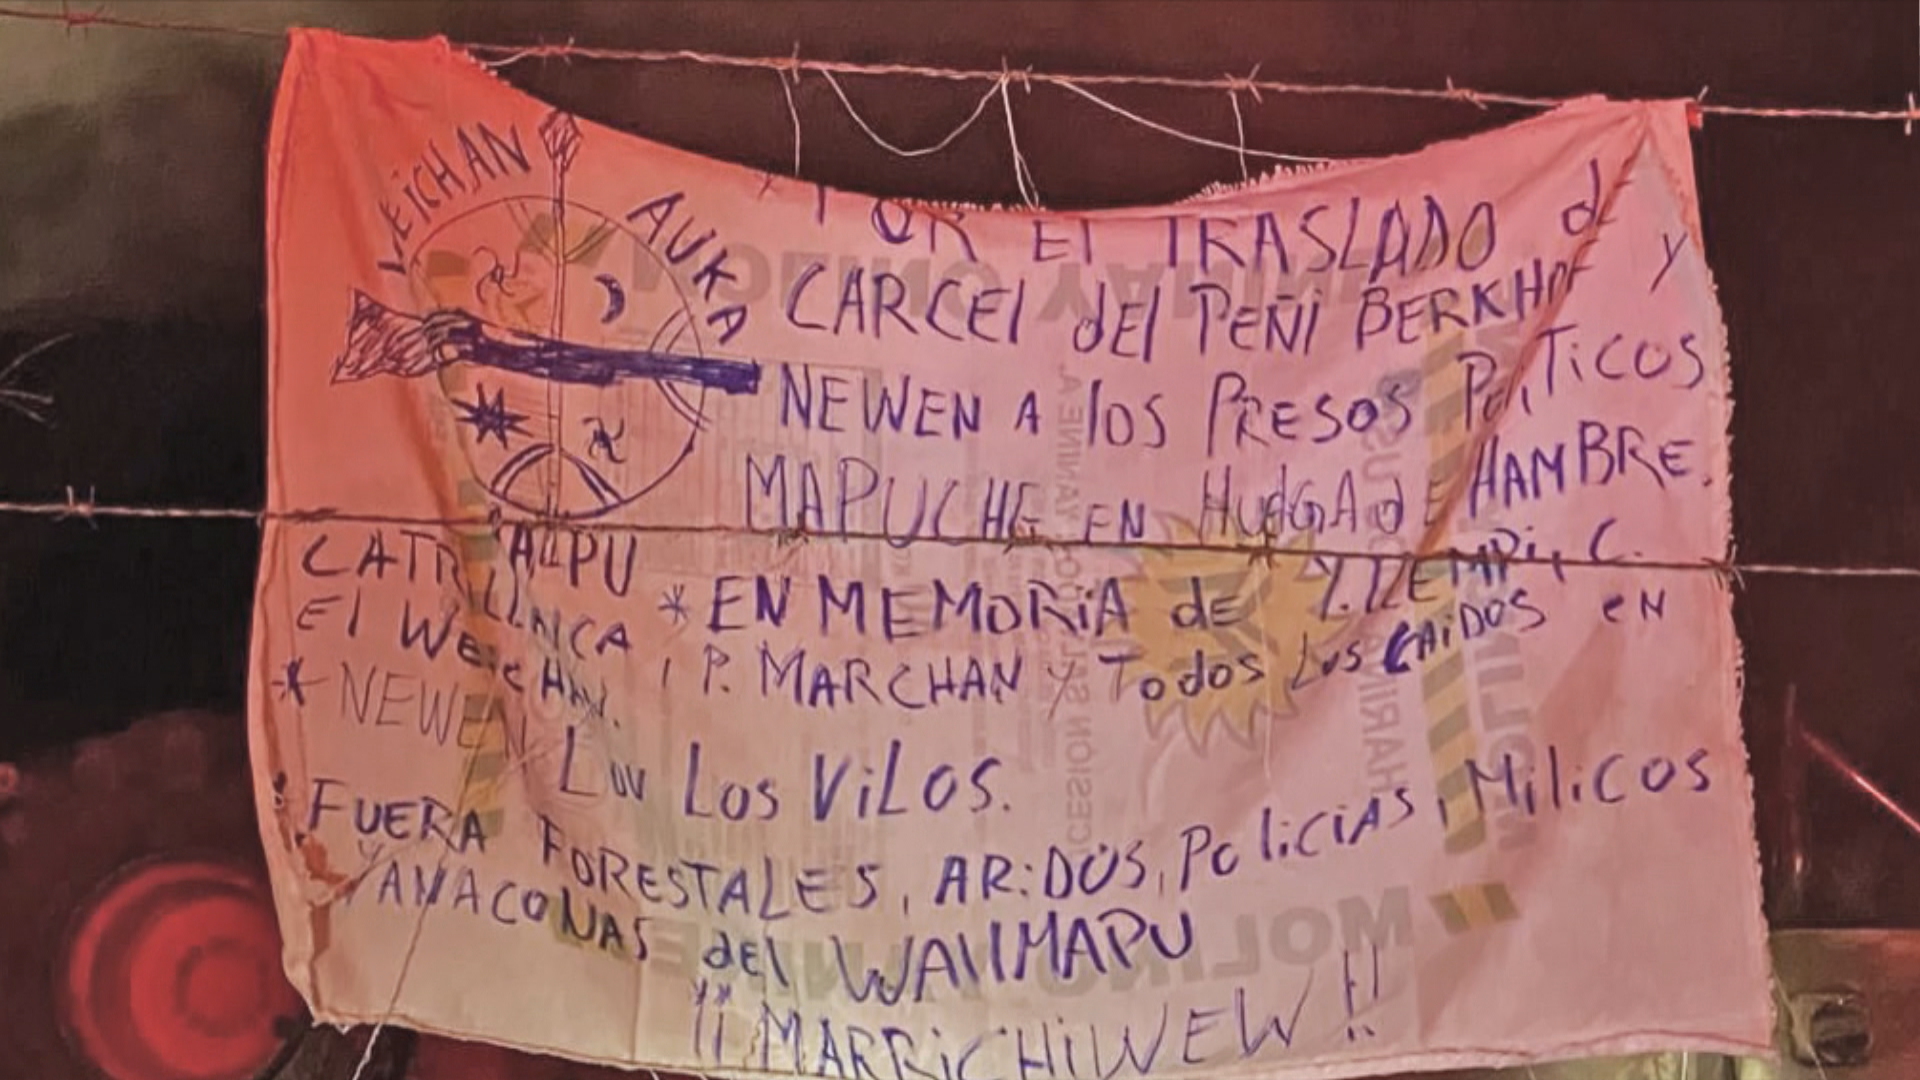 WEICHAN
AUKA
* POR El TRASLADO de
CARCEl dEl PEÑI BERKHOF y
NEWEN A los PRESOS POliTiCOS
MAPUCHE EN HUElGA dE HAMBRE.
* EN MEMORiA dE
C.
CATRILLANCA, P. MARCHAN y TODOS LOS CAiDOS EN
El WEiCHAN.
* NEWEN
LOV LOS ViLOS.
FUERA FORESTALES, ARiDOS, POliCiAS, MiliCOS
YANACONAS dEl WAllMAPU
¡¡ MARRiCHiWEW !!